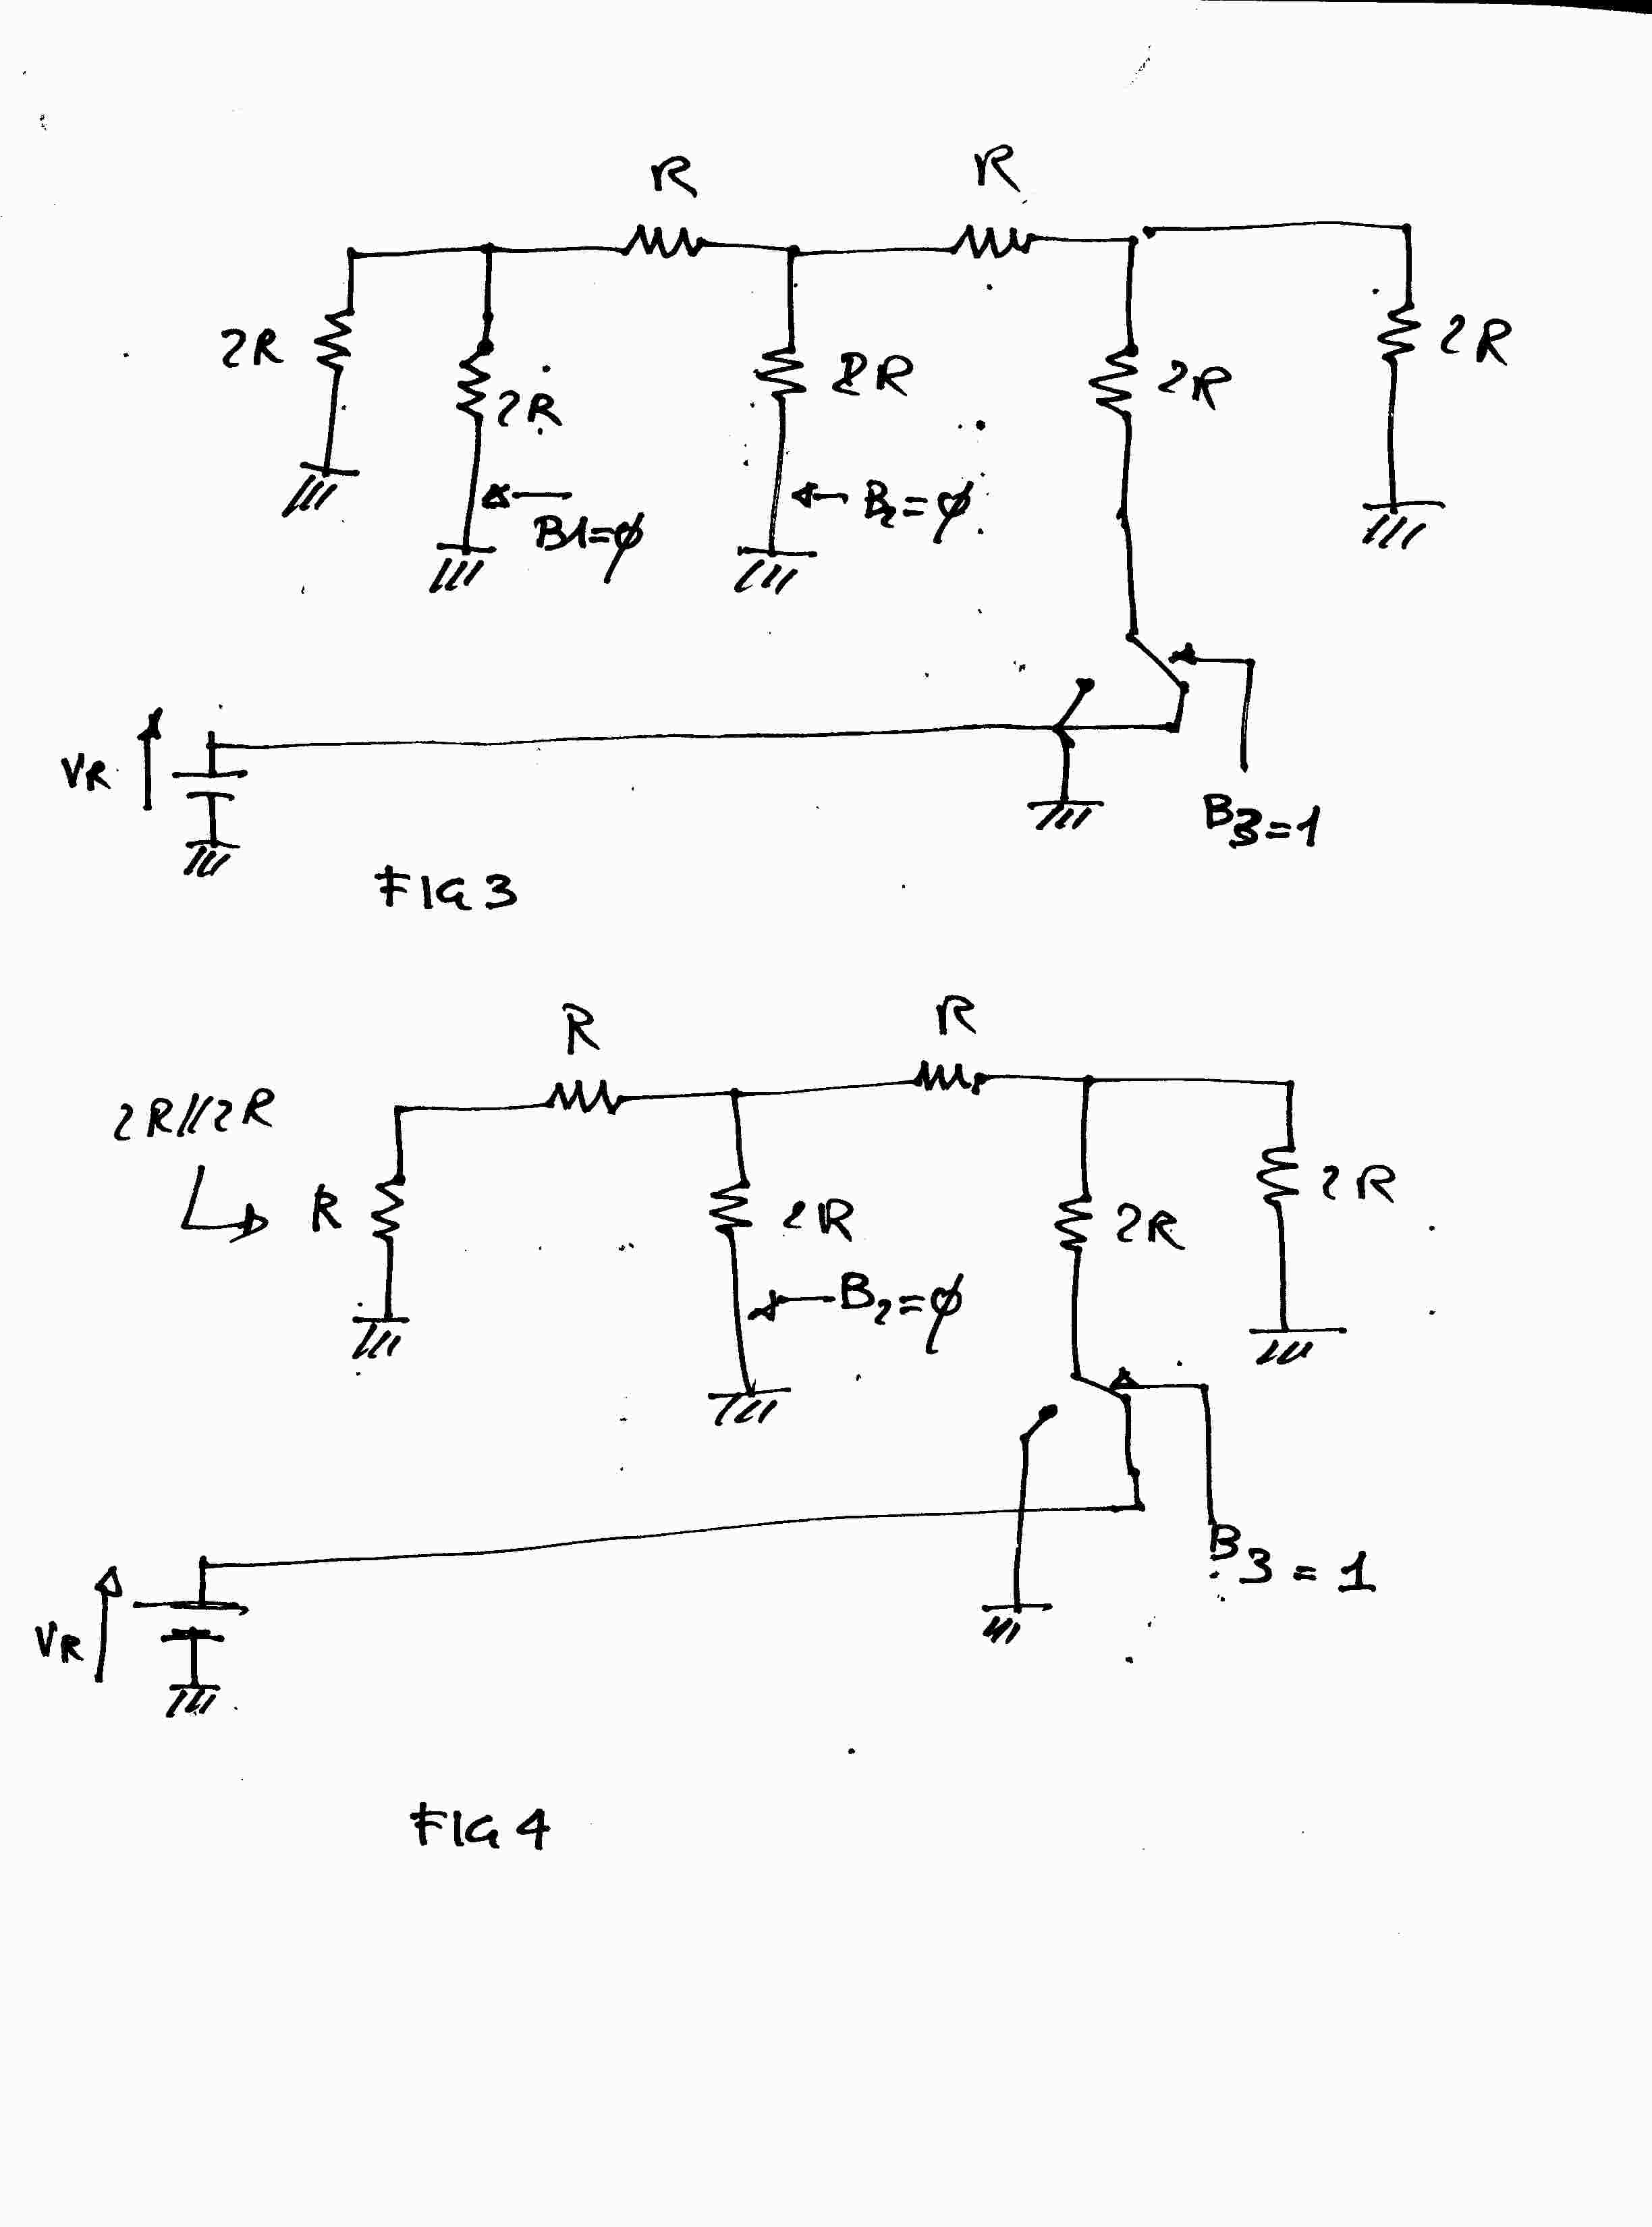 R R
2R 2R 2R 2R 2R
B1=φ B2=φ
VR
B3=1
FIG 3
R R
2R//2R
R 2R 2R 2R
B2=φ
B3=1
VR
FIG 4